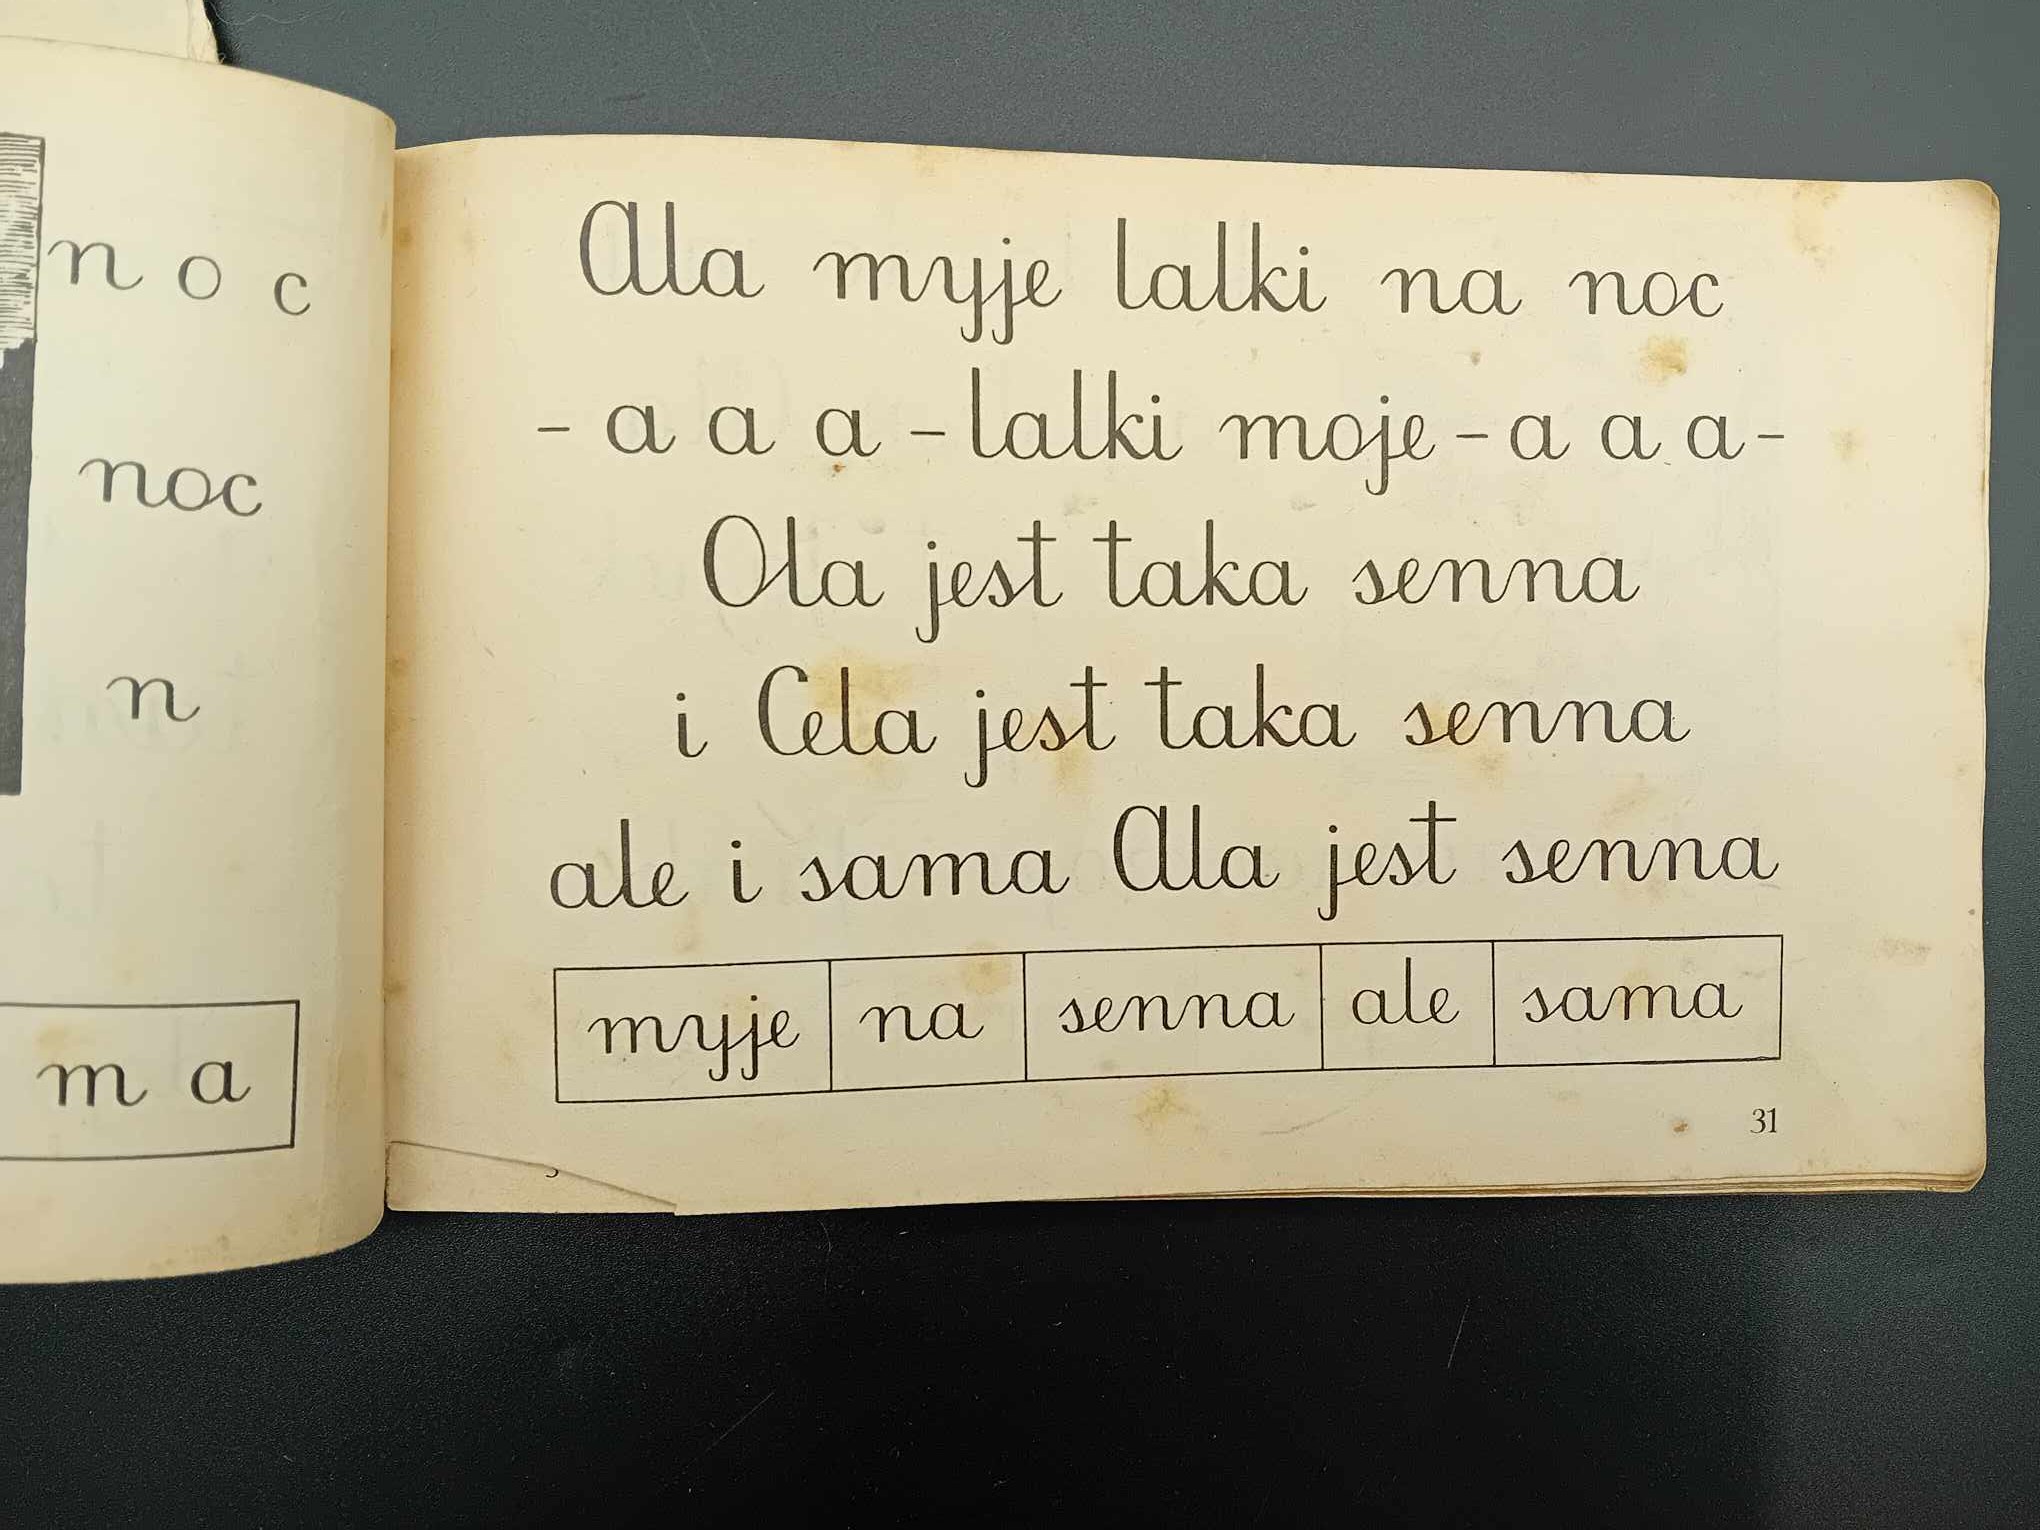 n o c
noc
n
m a
Ala myje lalki na noc
- a a a - lalki moje - a a a -
Ola jest taka senna
i Cela jest taka senna
ale i sama Ala jest senna
myje na senna ale sama
31